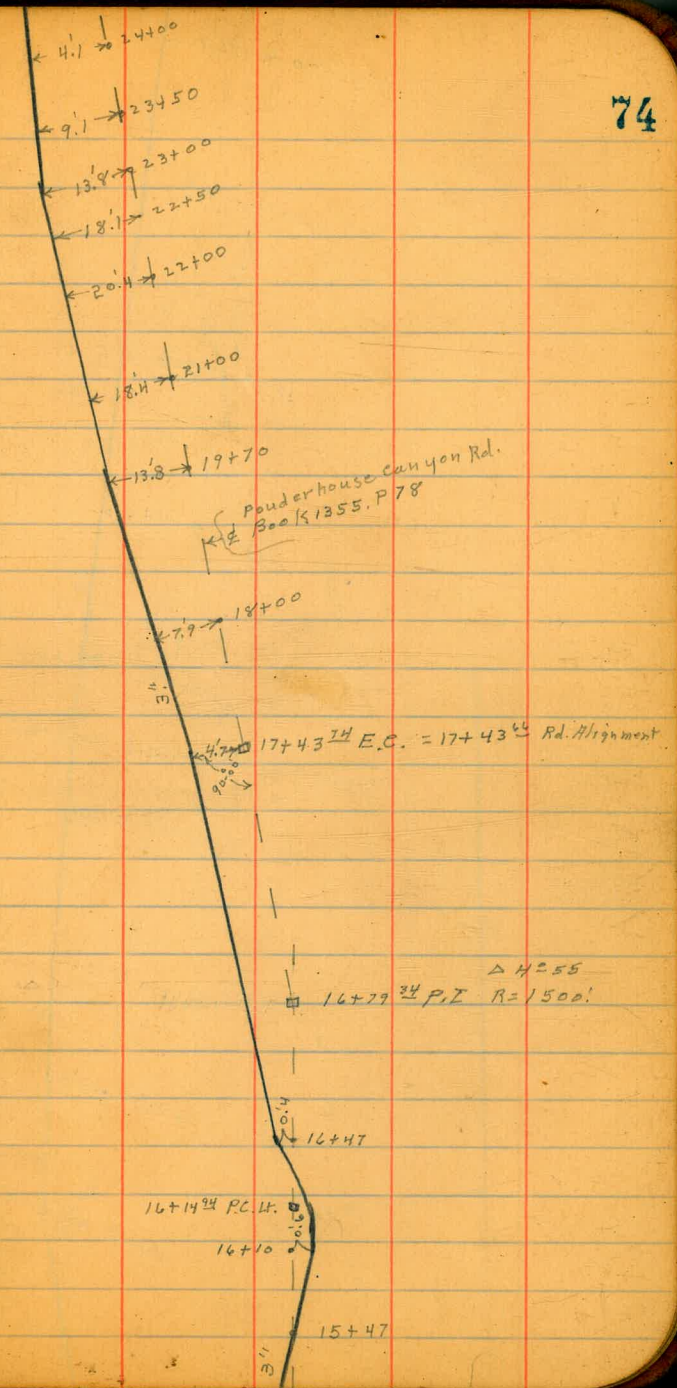 74
4.'1 24+00
9.'1 23+50
13.'8 23+00
18.'1 22+50
20.'4 22+00
18.'4 21+00
13.'8 19+70
Pouderhouse Canyon Rd.
℄ Book 1355, P 78
7.'9 18+00
3"
4.'7 17+43 74 E.C. = 17+43 66 Rd. Alignment
90°00'
Δ 4°55
16+79 34 P.I R=1500'
0.'4
16+47
16+14 94 P.C. Lt.
0.'6
16+10
15+47
3"